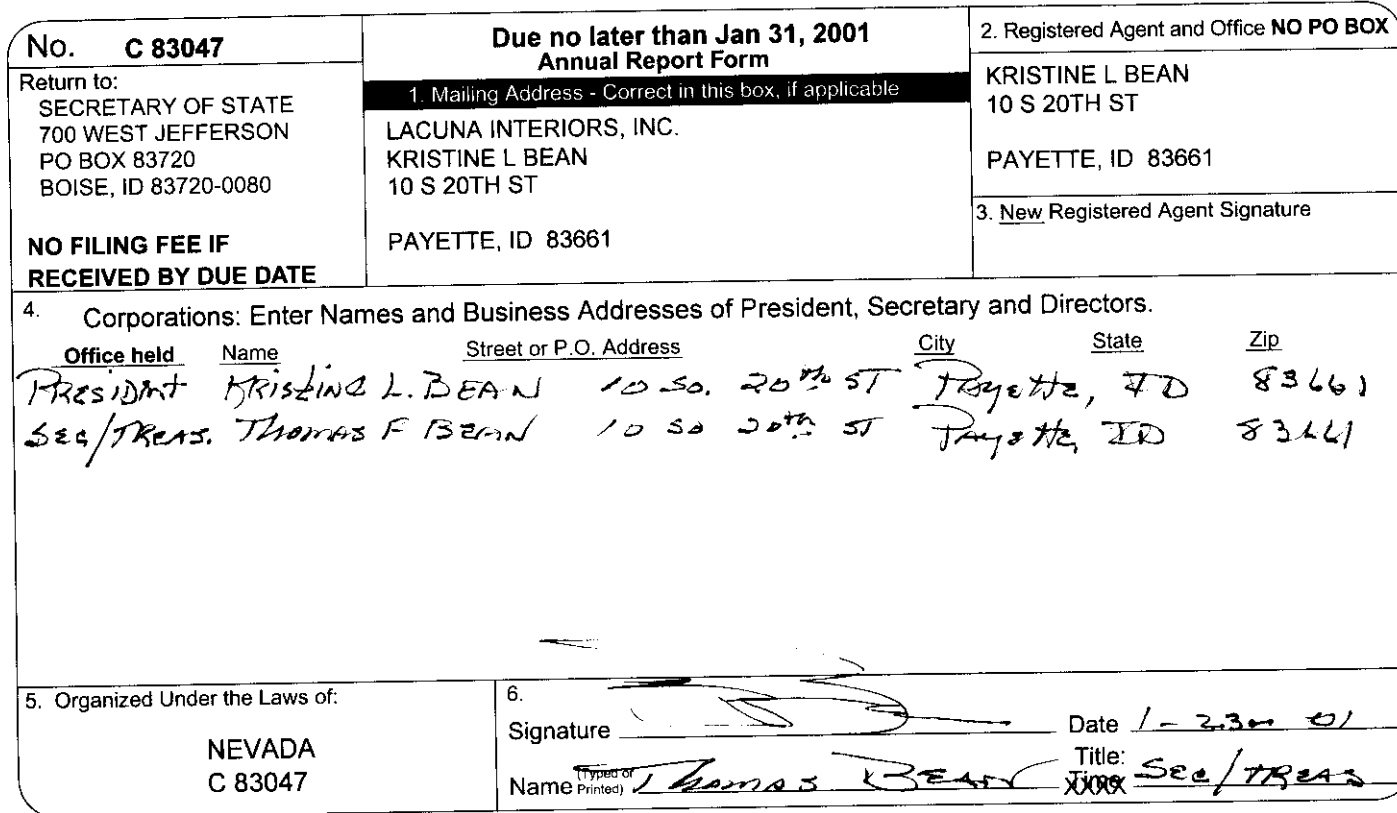 No. C 83047
Return to:
SECRETARY OF STATE
700 WEST JEFFERSON
PO BOX 83720
BOISE, ID 83720-0080
NO FILING FEE IF
RECEIVED BY DUE DATE
Due no later than Jan 31, 2001
Annual Report Form
1. Mailing Address - Correct in this box, if applicable
LACUNA INTERIORS, INC.
KRISTINE L BEAN
10 S 20TH ST
PAYETTE, ID 83661
2. Registered Agent and Office NO PO BOX
KRISTINE L BEAN
10 S 20TH ST
PAYETTE, ID 83661
3. New Registered Agent Signature
4. Corporations: Enter Names and Business Addresses of President, Secretary and Directors.
Office held Name Street or P.O. Address City State Zip
PRESIDENT KRISTINE L. BEAN 10 SO. 20th ST Payette, ID 83661
SEC/TREAS. THOMAS F BEAN 10 SO 20th ST Payette, ID 83661
5. Organized Under the Laws of:
NEVADA
C 83047
6.
Signature Date 1-23-01
Name (Typed or Printed) Thomas BEAN Title: SEC/TREAS